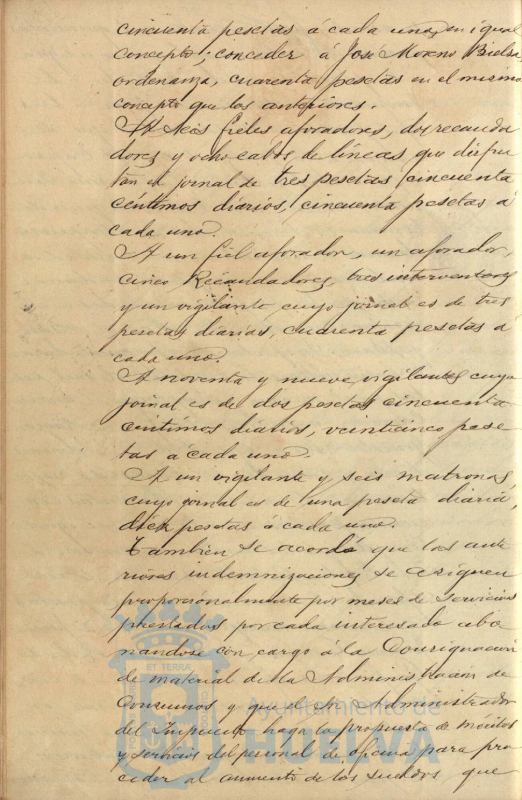 cincuenta pesetas á cada uno, en igual
concepto; conceder á José Moreno Bielsa,
ordenanza, cuarenta pesetas en el mismo
concepto que los anteriores.
A seis fieles aforadores, dos recauda
dores y ocho cabos de líneas que disfru
tan el jornal de tres pesetas cincuenta
centimos diarios, cincuenta pesetas á
cada uno.
A un fiel aforador, un aforador,
cinco Recaudadores, tres interventores
y un vigilante cuyo jornal es de tres
pesetas diarias, cuarenta pesetas a
cada uno.
A noventa y nueve vigilantes cuyo
jornal es de dos pesetas cincuenta
centimos diarios, veinticinco pese
tas a cada uno.
A un vigilante y seis matronas,
cuyo jornal es de una peseta diaria,
diez pesetas á cada uno.
Tambien se acordó que las ante
riores indemnizaciones se
proporcionalmente por meses de servicios
prestados por cada interesado abo
nandose con cargo á la Consignacion
de material de la Administracion de
Consumos y que el Sr. Administrador
del Impuesto haga la propuesta de méritos
y servicios del personal de oficina para pro
ceder al aumento de los sueldos que
ET TERRÆ
Ayuntamiento de
HUELVA